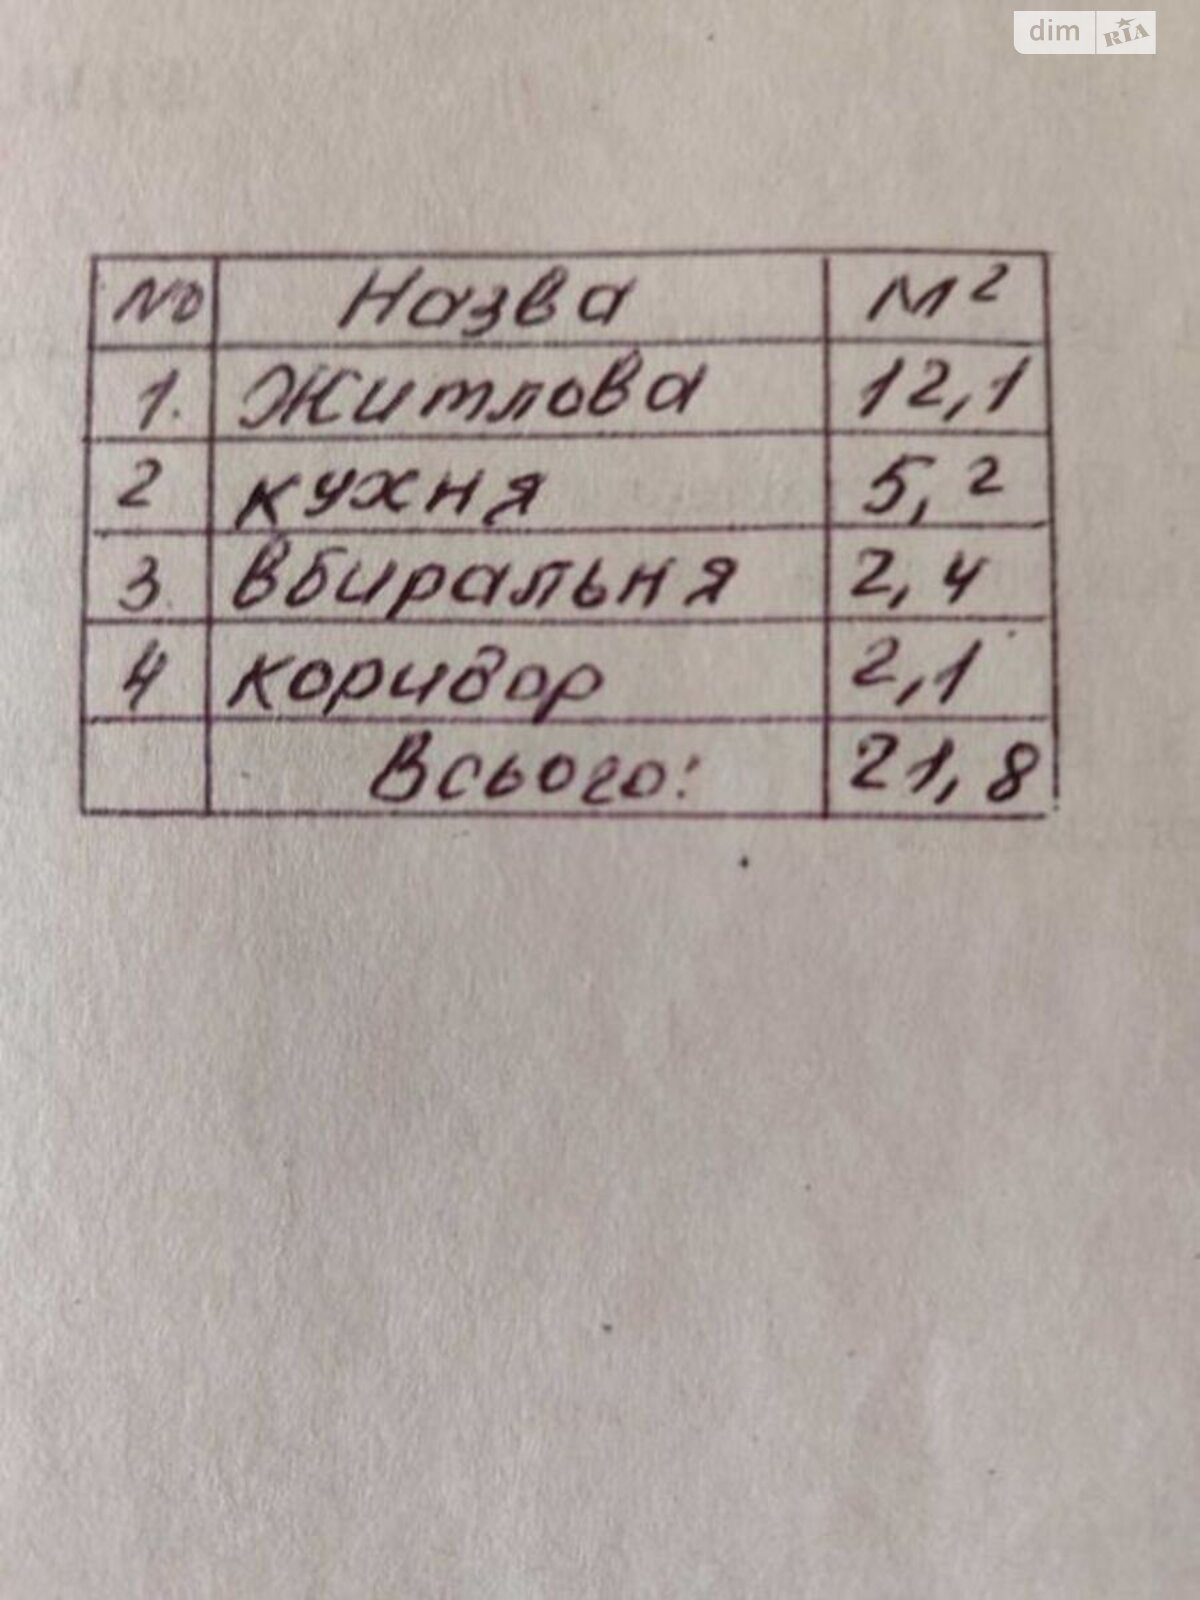 dim RIA
№ Назва м²
1. Житлова 12,1
2 кухня 5,2
3. вбиральня 2,4
4 коридор 2,1
Всього: 21,8